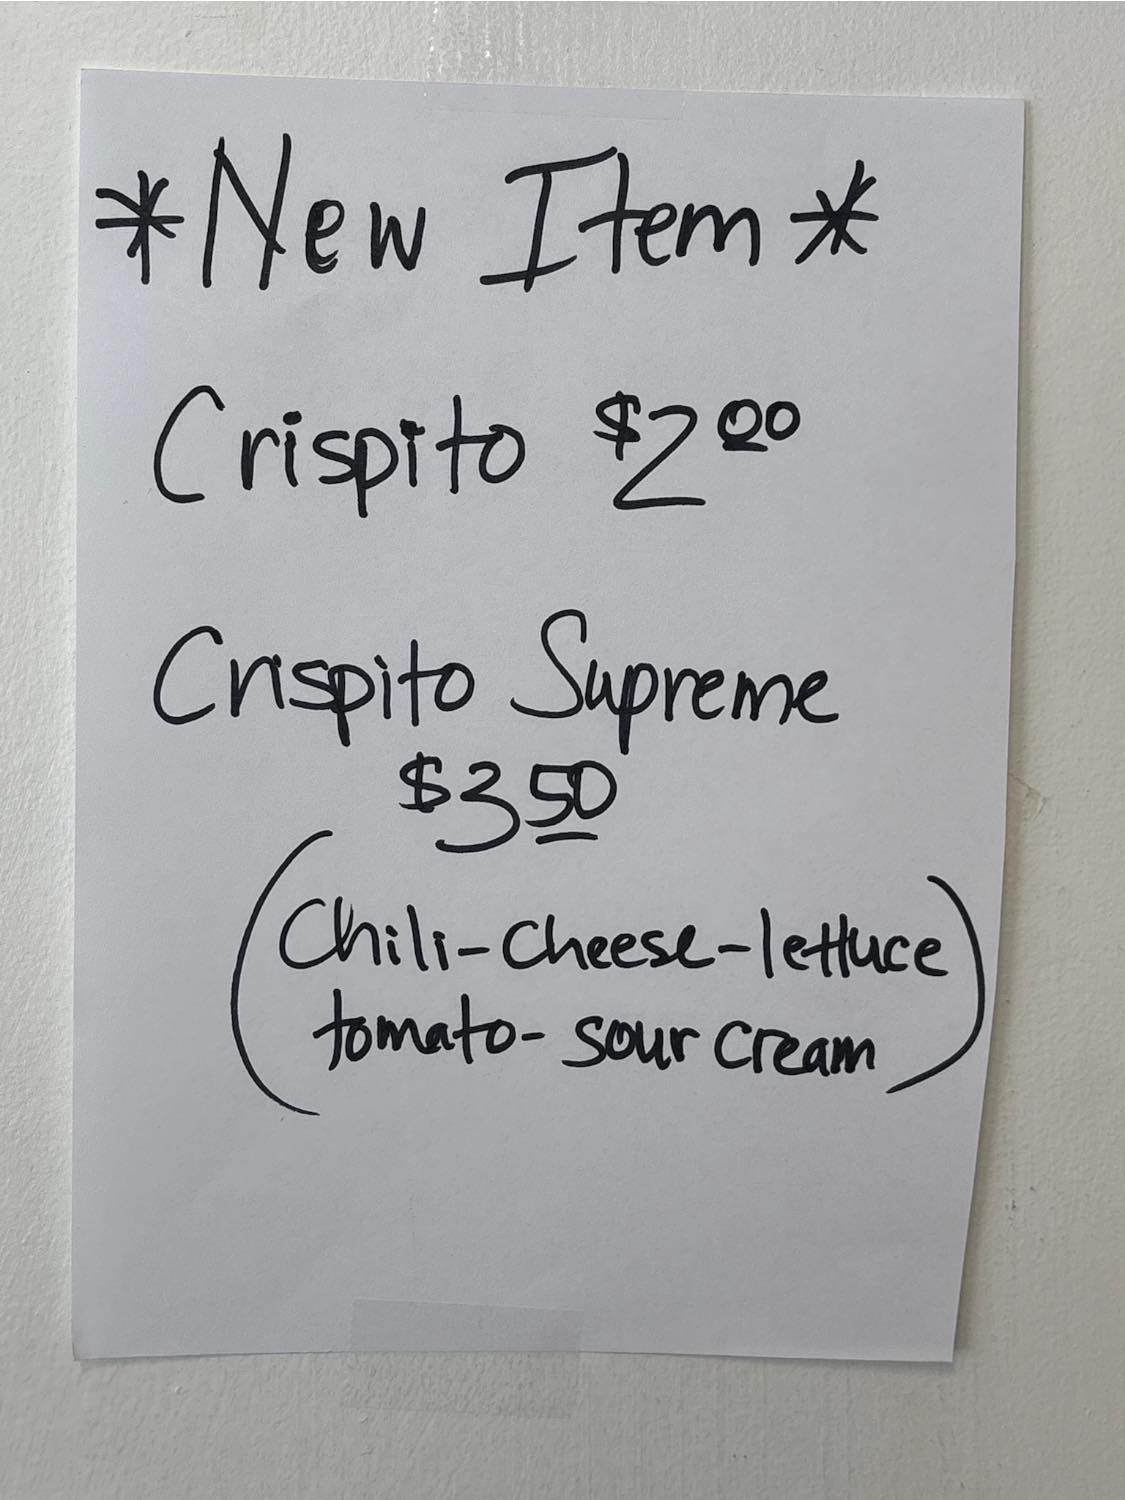 *New Item*
Crispito $2 00
Crispito Supreme
$3 50
(Chili-Cheese-lettuce
tomato- sour cream)